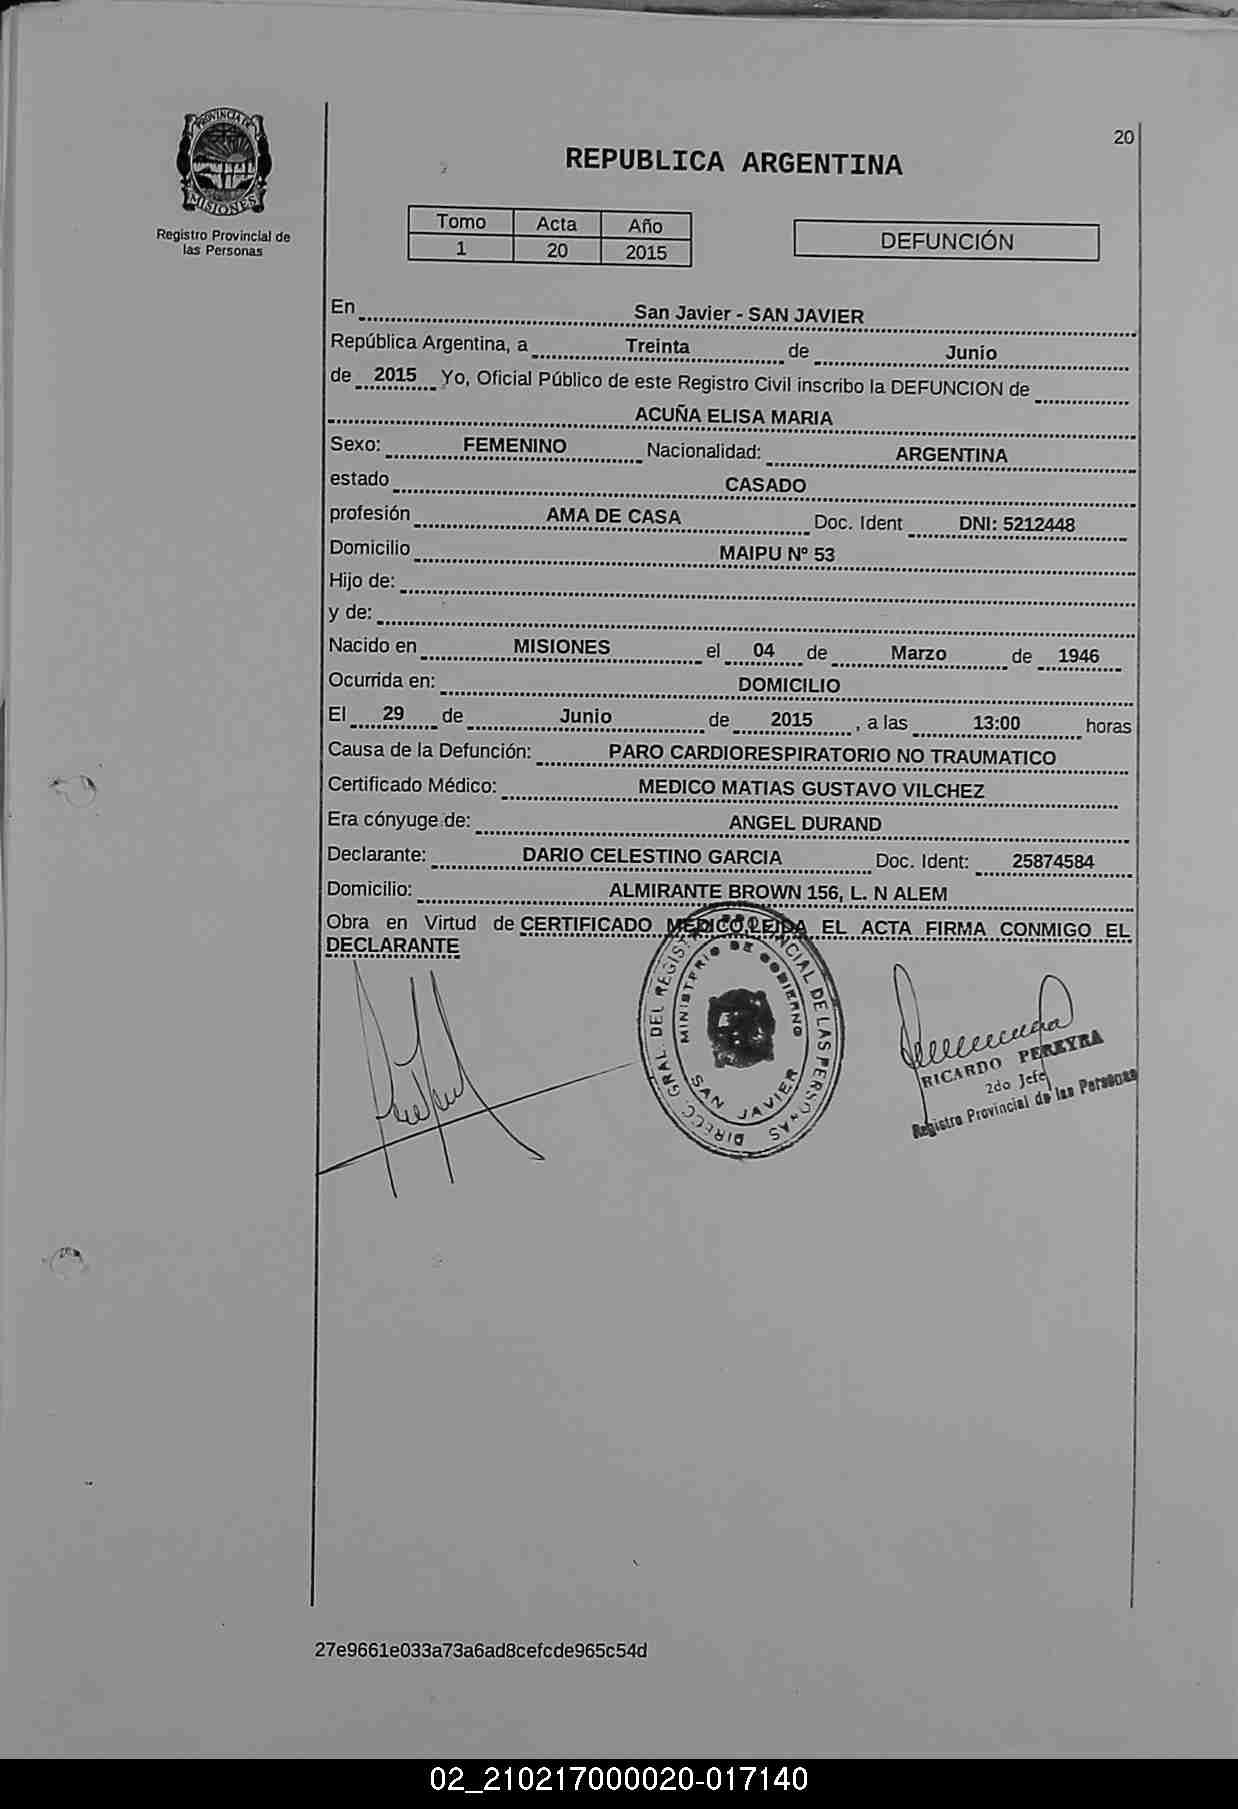 PROVINCIA DE
MISIONES
Registro Provincial de
las Personas
20
REPUBLICA ARGENTINA
Tomo Acta Año
1 20 2015
DEFUNCIÓN
En San Javier - SAN JAVIER
República Argentina, a Treinta de Junio
de 2015 Yo, Oficial Público de este Registro Civil inscribo la DEFUNCION de
ACUÑA ELISA MARIA
Sexo: FEMENINO Nacionalidad: ARGENTINA
estado CASADO
profesión AMA DE CASA Doc. Ident DNI: 5212448
Domicilio MAIPU Nº 53
Hijo de:
y de:
Nacido en MISIONES el 04 de Marzo de 1946
Ocurrida en: DOMICILIO
El 29 de Junio de 2015 , a las 13:00 horas
Causa de la Defunción: PARO CARDIORESPIRATORIO NO TRAUMATICO
Certificado Médico: MEDICO MATIAS GUSTAVO VILCHEZ
Era cónyuge de: ANGEL DURAND
Declarante: DARIO CELESTINO GARCIA Doc. Ident: 25874584
Domicilio: ALMIRANTE BROWN 156, L. N ALEM
Obra en Virtud de CERTIFICADO MEDICO,LEIDA EL ACTA FIRMA CONMIGO EL
DECLARANTE
DIRECC. GRAL. DEL REGISTRO PROVINCIAL DE LAS PERSONAS
MINISTERIO DE GOBIERNO
SAN JAVIER
RICARDO PEREYRA
2do Jefe
Registro Provincial de las Personas
27e9661e033a73a6ad8cefcde965c54d
02_210217000020-017140